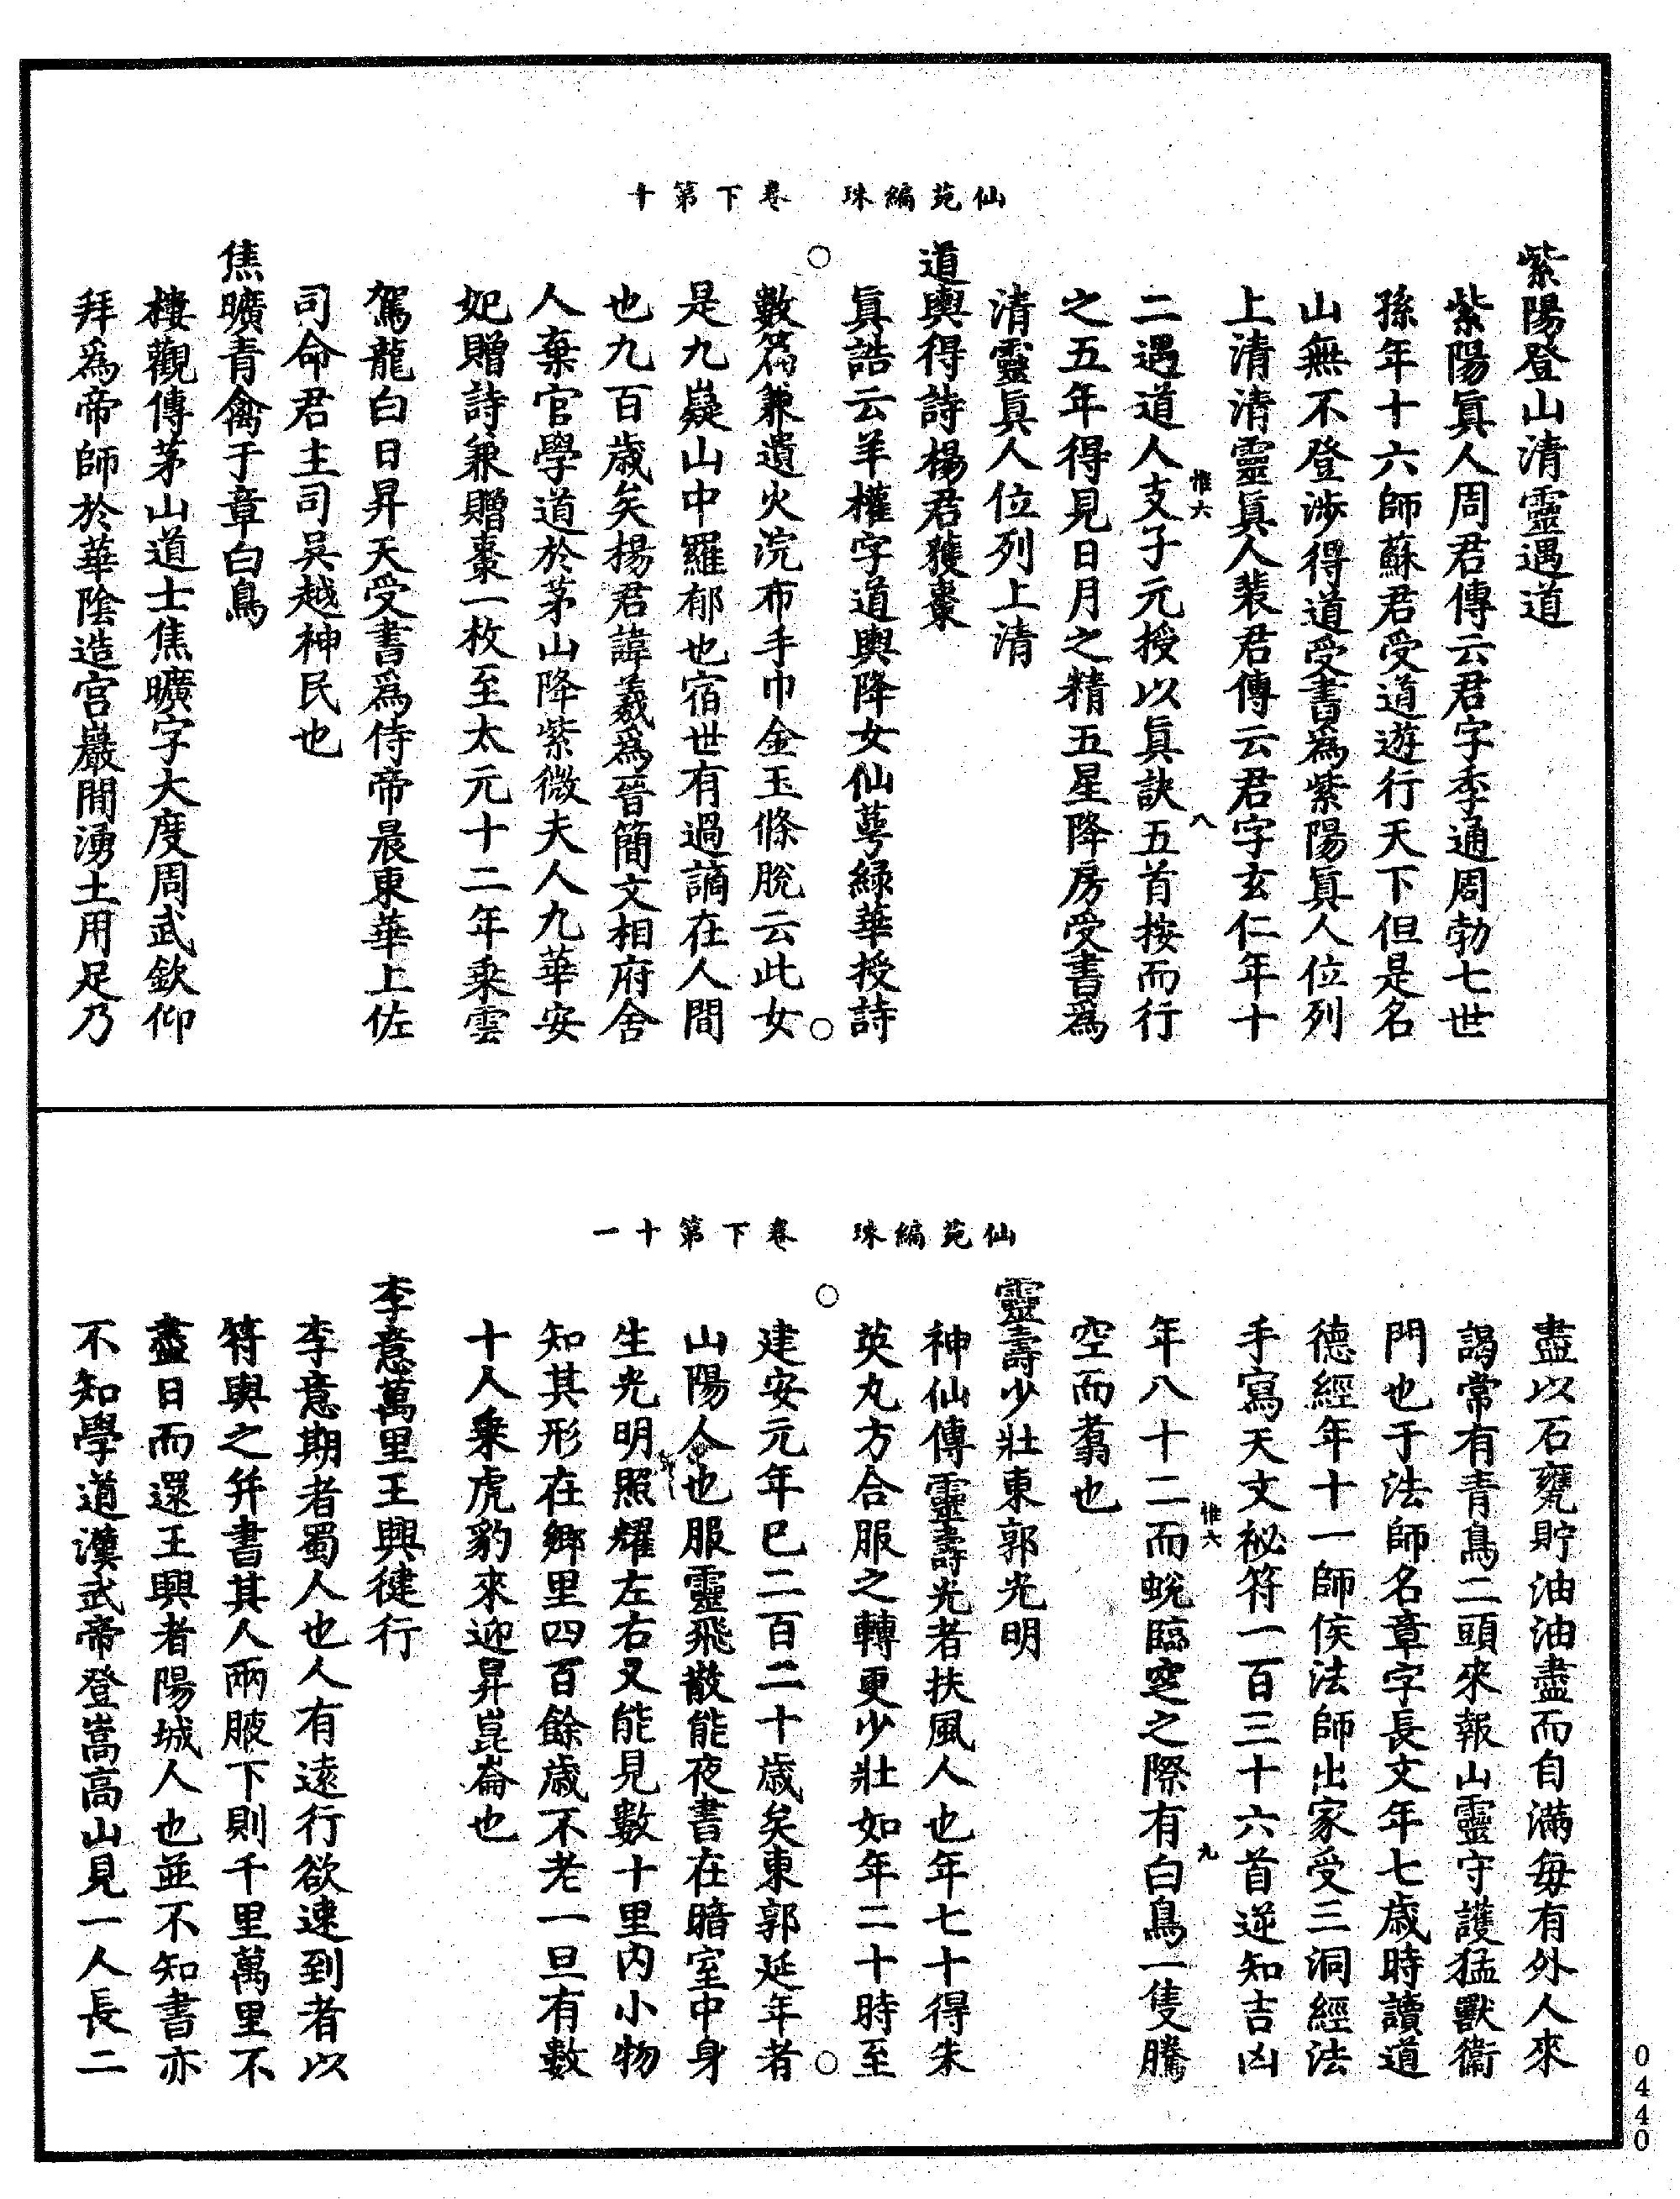 仙苑編珠　卷下第十
紫陽登山清靈遇道
紫陽眞人周君傳云君字季通周勃七世
孫年十六師蘇君受道遊行天下但是名
山無不登涉得道受書爲紫陽眞人位列
上清清靈眞人裴君傳云君字玄仁年十
惟六　八
二遇道人支子元授以眞訣五首按而行
之五年得見日月之精五星降房受書爲
清靈眞人位列上清
道輿得詩楊君獲棗
眞誥云羊權字道輿降女仙萼綠華授詩
數篇兼遺火浣布手巾金玉條脫云此女
是九嶷山中羅郁也宿世有過謫在人間
也九百歲矣楊君諱羲爲晉簡文相府舍
人棄官學道於茅山降紫微夫人九華安
妃贈詩兼贈棗一枚至太元十二年乘雲
駕龍白日昇天受書爲侍帝晨東華上佐
司命君主司吳越神民也
焦曠青禽于章白鳥
樓觀傳茅山道士焦曠字大度周武欽仰
拜爲帝師於華陰造宮巖間湧土用足乃
仙苑編珠　卷下第十一
盡以石甕貯油油盡而自滿每有外人來
謁常有青鳥二頭來報山靈守護猛獸衞
門也于法師名章字長文年七歲時讀道
德經年十一師侯法師出家受三洞經法
手寫天文祕符一百三十六首逆知吉凶
惟六　九
年八十二而蛻臨窆之際有白鳥一隻騰
空而翥也
靈壽少壯東郭光明
神仙傳靈壽光者扶風人也年七十得朱
英丸方合服之轉更少壯如年二十時至
建安元年巳二百二十歲矣東郭延年者
山陽人也服靈飛散能夜書在暗室中身
生光明照耀左右又能見數十里內小物
知其形在鄉里四百餘歲不老一旦有數
十人乘虎豹來迎昇崑崙也
李意萬里王興徤行
李意期者蜀人也人有遠行欲速到者以
符與之并書其人兩腋下則千里萬里不
盡日而還王興者陽城人也並不知書亦
不知學道漢武帝登嵩高山見一人長二
0440